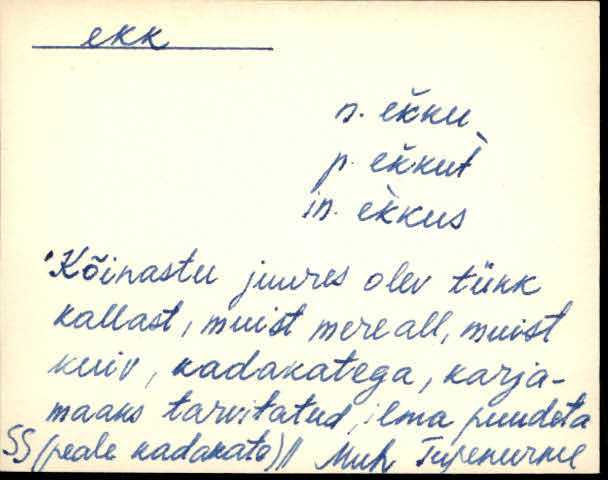 ekk
n. ekku
p. ekkut
in. ekkus
'Kõinastu juures olev tükk
kallast, muist mere all, muist
kuiv, kadakatega, karja-
maaks tarvitatud, ilma puudeta
SS (peale kadakate) // Muh